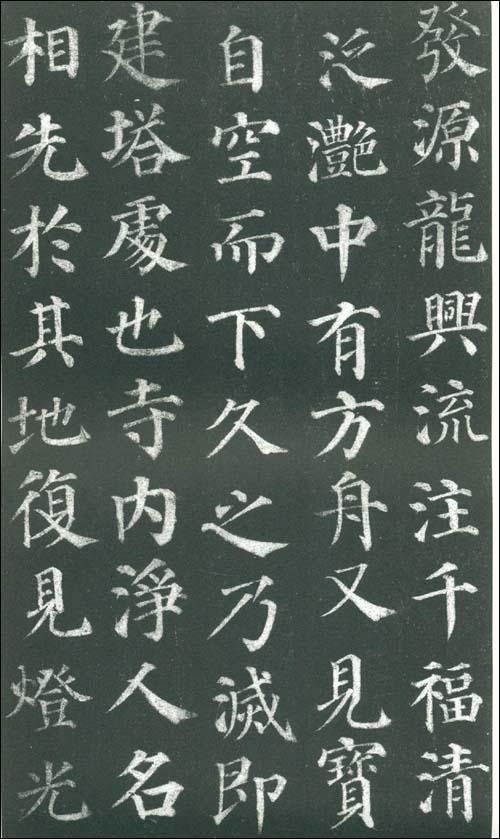 發源龍興流注千福清
泛灧中有方舟又見寶
自空而下久之乃滅即
建塔處也寺内淨人名
相先於其地復見燈光